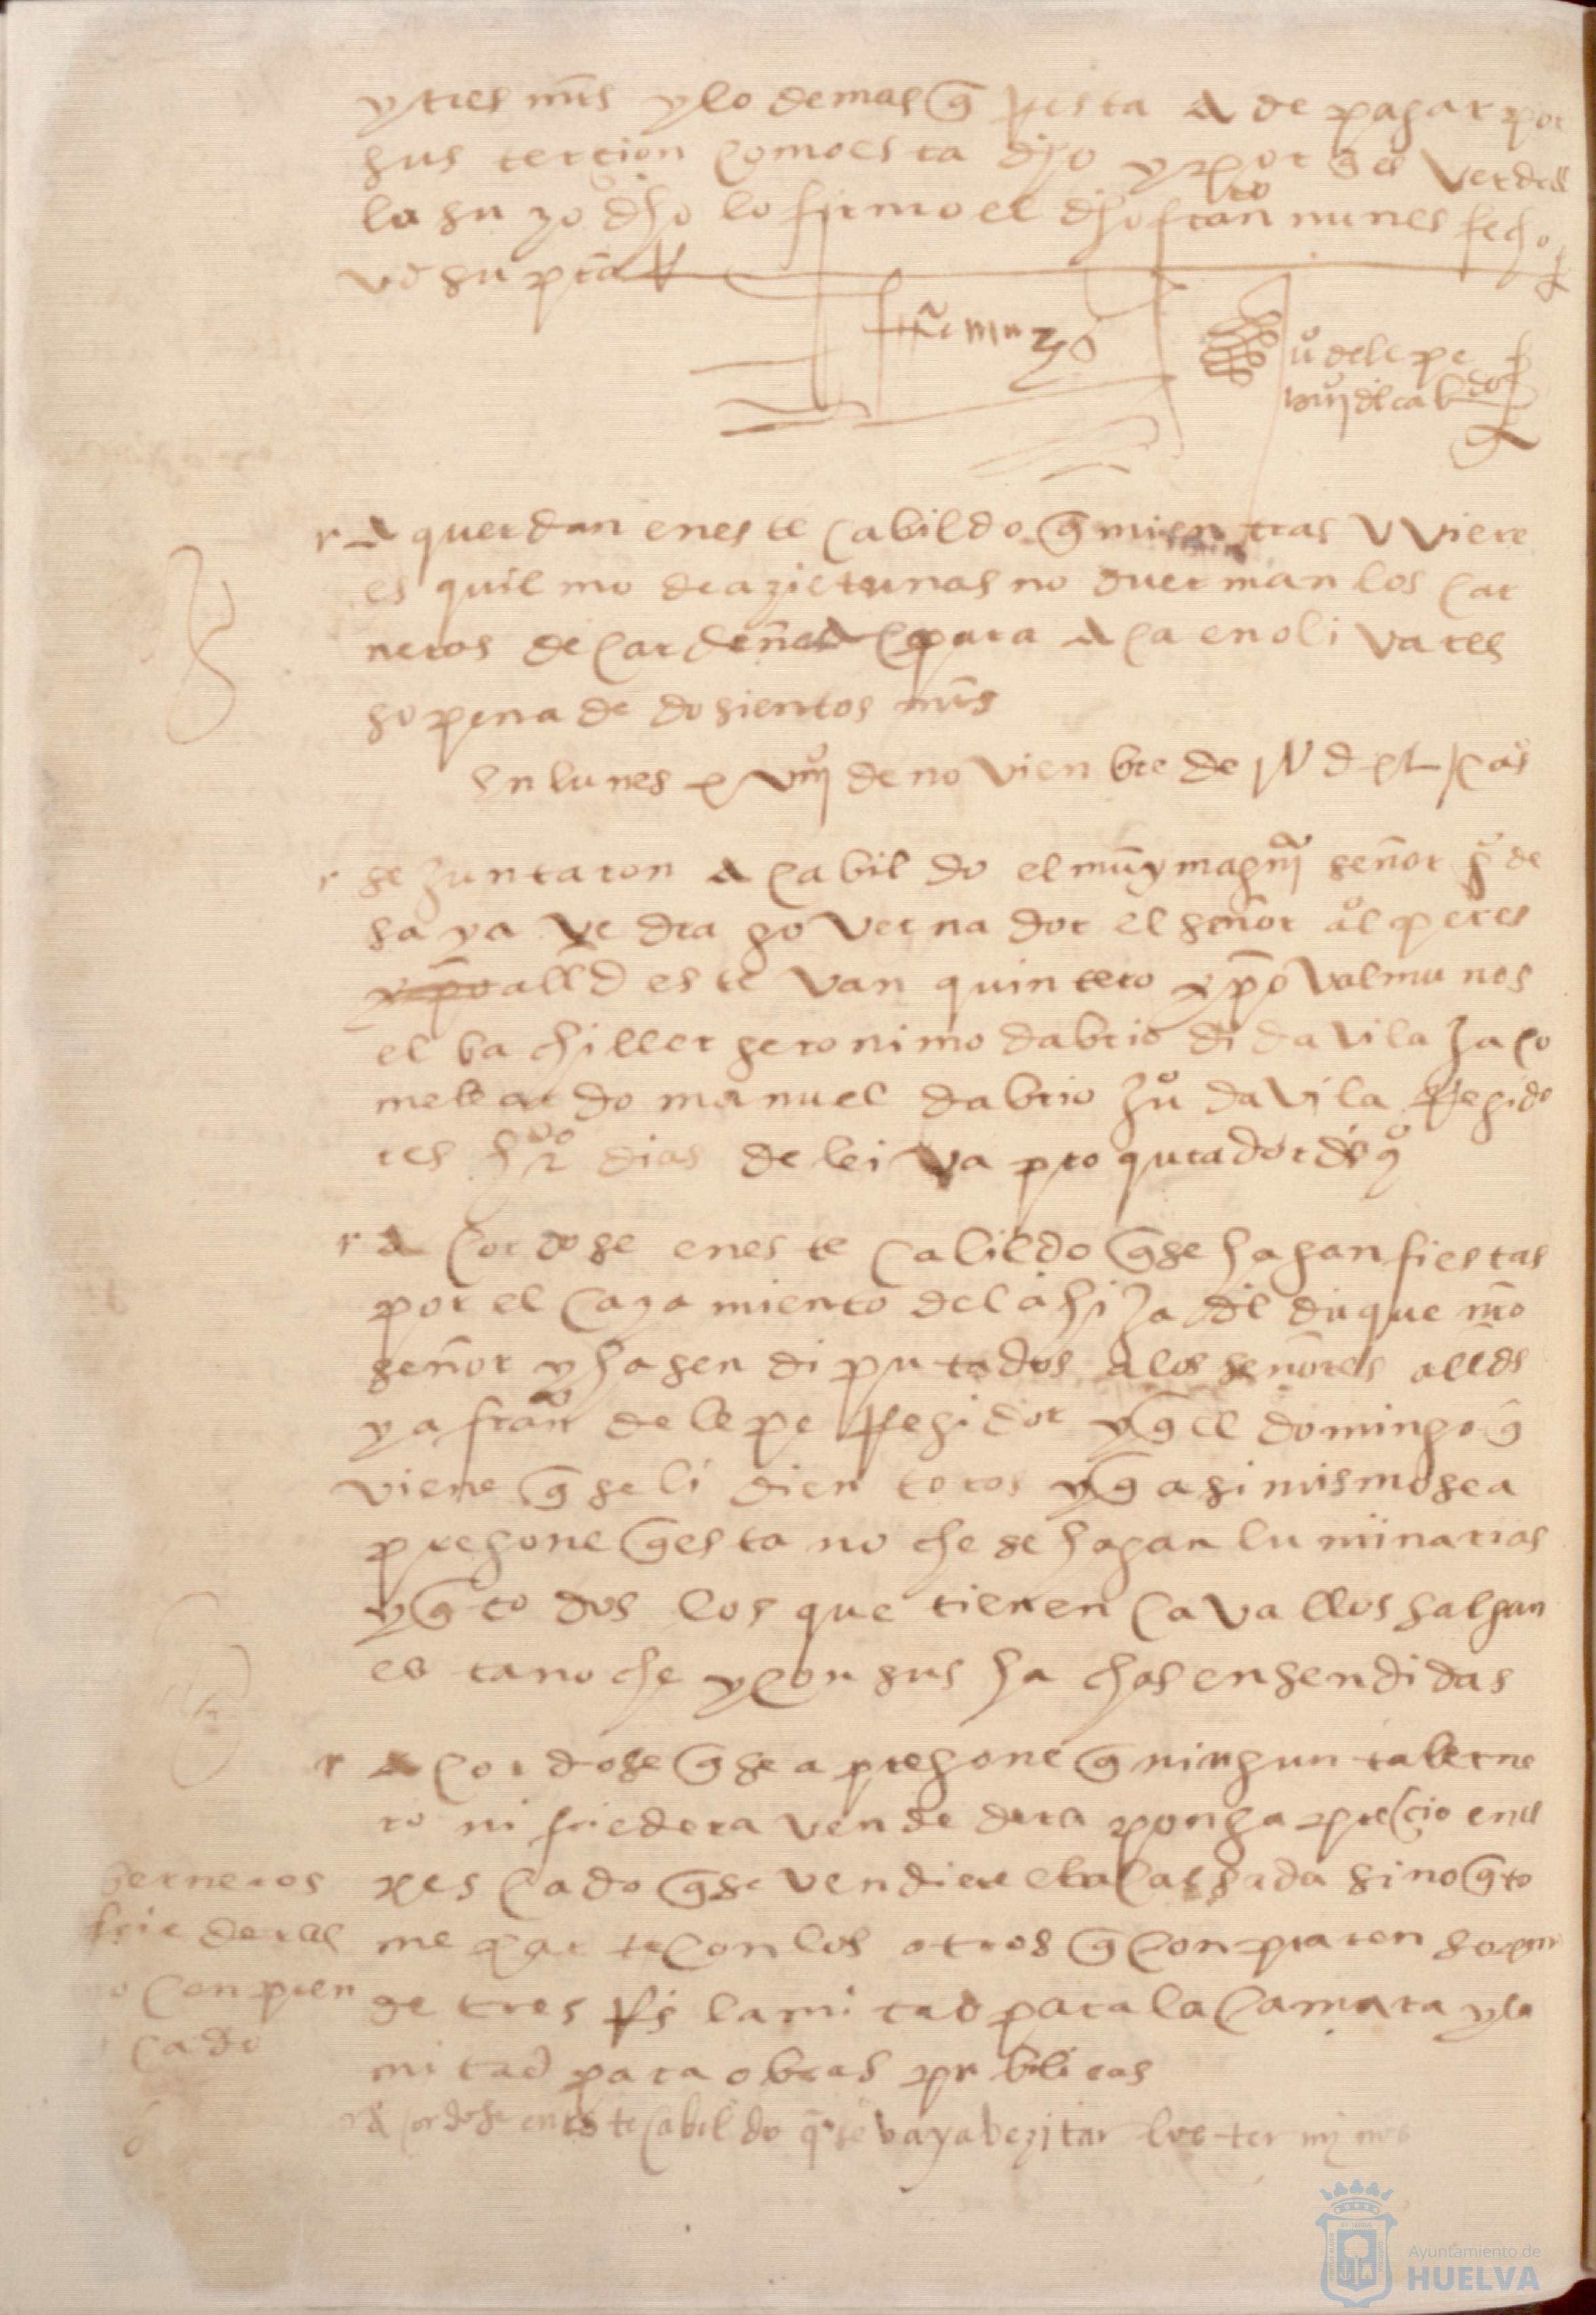 y tres mrs y lo demas q̃ rresta a de pagar por
sus tercion como esta dho y por q̃ es verdad
lo suzo dho lo firmo el dho fran^co nunes fecho
vt supra
fr^co nunez
ju^o de lepe
scrivº del cabdo
r a querdan en este cabildo q̃ mientras vviere
esquilmo de azietunas no duerman los car
neros de cardeñas para aca en olivares
so pena de dosientos mrs
en lunes xviijº de novienbre de jUdxLj años
r se juntaron a cabildo el muy magco señor gº de
sayavedra governador el señor alº peres
alld estevan quintero xpoval munos
el bachiller geronimo dabrio di davila jaco
me beardo manuel dabrio juº davila rregido
res dias de leiva procurador del qº
r a cordose en este cabildo q̃ se hagan fiestas
por el cazamiento de la hija del duque nro
señor y hasen diputados a los señores allds
y a fran^co de lepe rregidor y q̃ el domingo q̃
viene q̃ se lidien toros y q̃ asi mismo se a
pregone q̃ esta noche se hagan luminarias
y q̃ todos los que tienen cavallos salgan
esta noche y con sus hachas ensendidas
r a cordose q̃ se apregone q̃ ningun taberne
ro ni friedera vendedera ponga precio en el
pescado q̃ se vendiere en la calsada sino q̃ to
me parte con los otros q̃ conpraren so pena
de tres rs la mitad para la camara y la
mitad para obras publicas
r a cordose en este cabildo q̃ se vaya bezitar los terminos
berneros
friederas
no conpren
cado
Ayuntamiento de
HUELVA